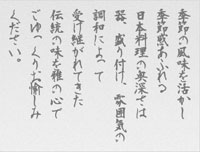 季節の風味を活かし
季節感あふれる
日本料理の奥深さは
器、盛り付け、雰囲気の
調和によって
受け継がれてきた
伝統の味を雅の心で
ごゆっくりお愉しみ
ください。